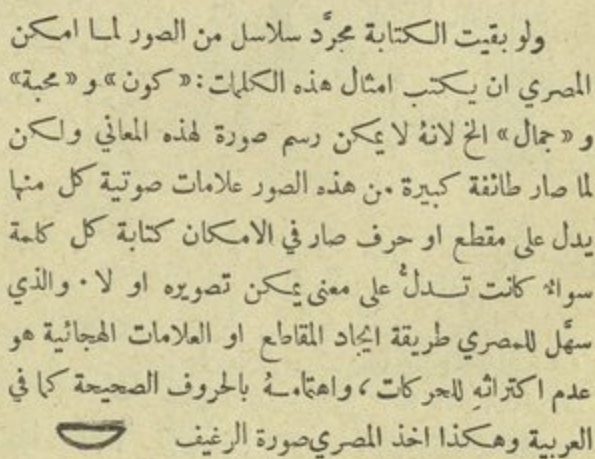 ولو بقيت الكتابة مجرَّد سلاسل من الصور لما امكن
المصري ان يكتب امثال هذه الكلمات: «كون» و «محبة»
و «جمال» الخ لانهُ لا يمكن رسم صورة لهذه المعاني ولكن
لما صار طائفة كبيرة من هذه الصور علامات صوتية كل منها
يدل على مقطع او حرف صار في الامكان كتابة كل كلمة
سوالا كانت تدلُّ على معنى يمكن تصويره او لا . والذي
سهَّل للمصري طريقة ايجاد المقاطع او العلامات الهجائية هو
عدم اكتراثهِ للحركات، واهتمامهُ بالحروف الصحيحة كما في
العربية وهكذا اخذ المصري صورة الرغيف